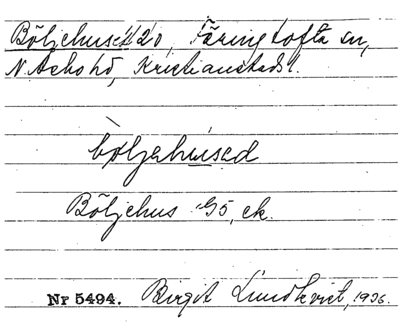 Böljehuset 20, Färingtofta sn,
N. Åsbo hd, Kristianstads l.
bøljahused
Böljehus G5, ek.
Nr 5494. Birgit Lundkvist, 1936.